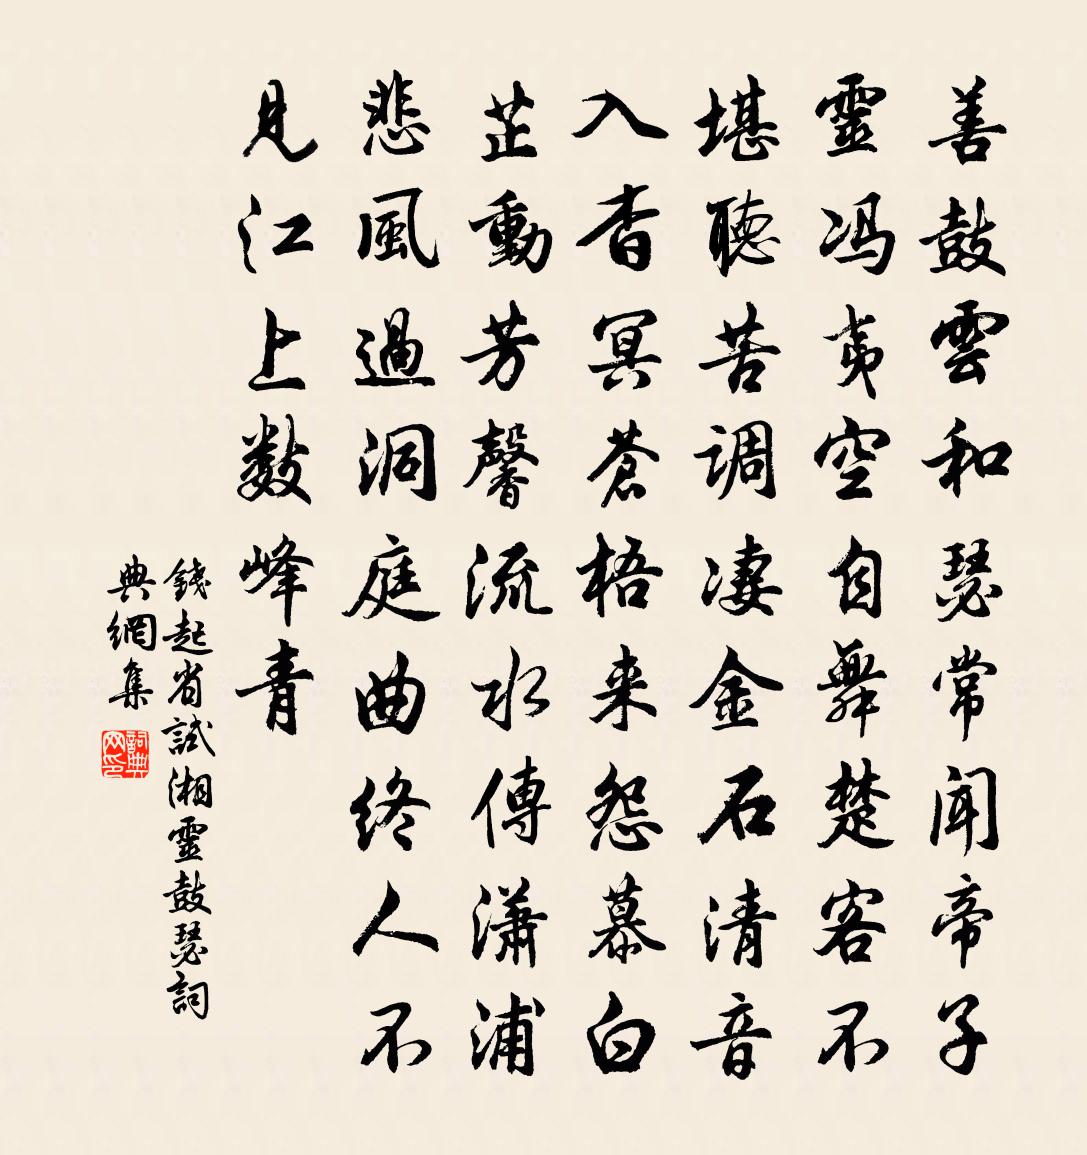 善鼓雲和瑟常聞帝子
靈馮夷空自舞楚客不
堪聽苦調凄金石清音
入杳冥蒼梧来怨慕白
芷動芳馨流水傳瀟浦
悲風過洞庭曲終人不
見江上數峰青
錢起省試湘靈鼓瑟詞
典網集
詞典
网印